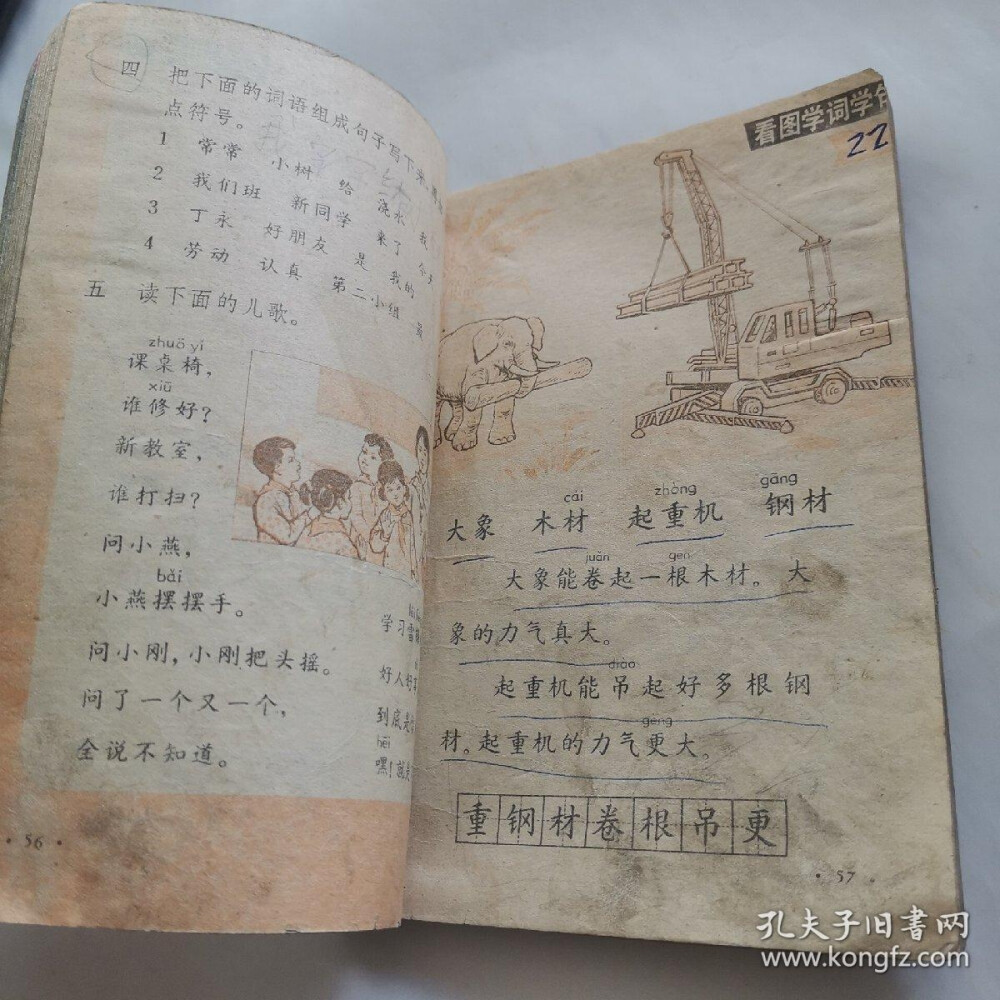 四 把下面的词语组成句子写下来,
点符号。
1 常常 小树 给 浇水 我
2 我们班 新同学 来了 个
3 丁永 好朋友 是 我的
4 劳动 认真 第二小组
五 读下面的儿歌。
zhuō yǐ
课桌椅,
xiū
谁修好?
新教室,
谁打扫?
问小燕,
bǎi
小燕摆摆手。
问小刚,小刚把头摇。
问了一个又一个,
全说不知道。
学习雷
好人好
到底是
hēi
嘿!就是
· 56 ·
看图学词学句
22
cái zhòng gāng
大象 木材 起重机 钢材
juǎn gēn
大象能卷起一根木材。大
象的力气真大。
diào
起重机能吊起好多根钢
gèng
材。起重机的力气更大。
重钢材卷根吊更
· 57 ·
孔夫子旧书网
www.kongfz.com